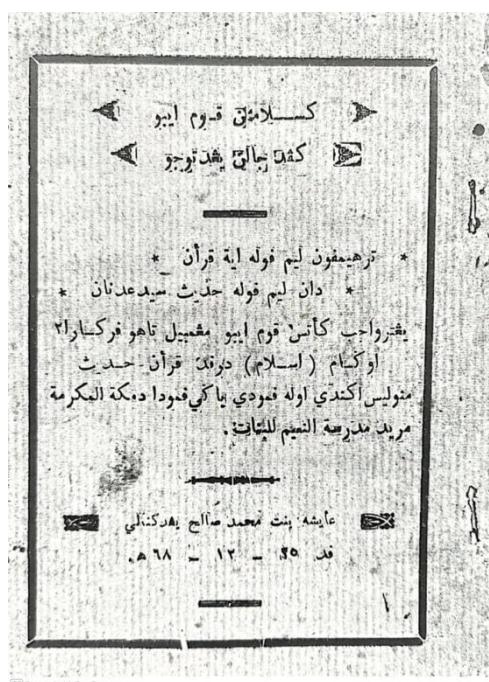 كسلامتن قوم ايبو
كفد جالن يڠدتوجو
* ترهيمفون ليم فوله اية قرأن *
* دان ليم فوله حديث سيدعدنان *
يڠترواجب كأتس قوم ايبو مڠمبيل تاهو فركارا٢
اوكام (اسلام) درفد قرأن حديث
منوليس اكندي اوله فمودي باكي فمودا دمكة المكرمة
مريد مدرسة النعيم للبنات.
عايشه بنت محمد صالح يڠدكنلي
فد ٢٥ – ١٢ – ٦٨ ه.